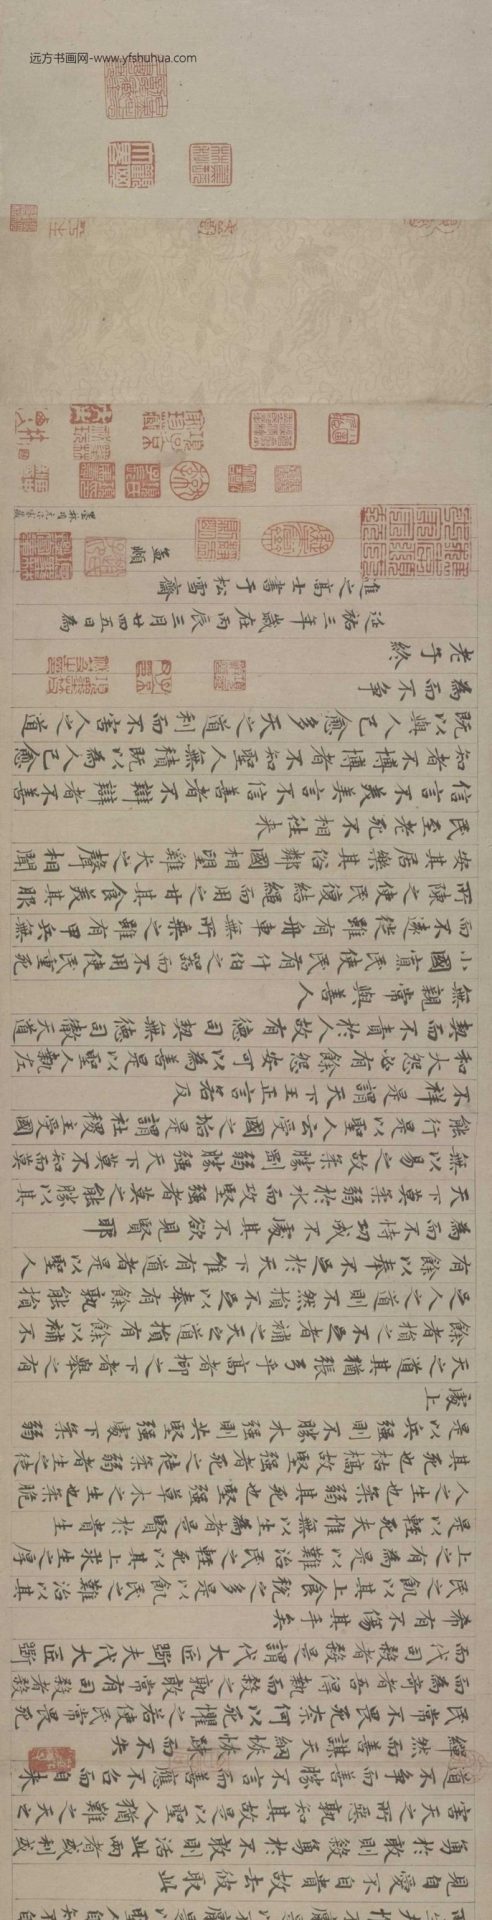 見自愛不自貴故去彼取此
勇於敢則殺勇於不敢則活此兩者或利或
害天之所惡孰知其故是以聖人猶難之天之
道不爭而善勝不言而善應不召而自來
繟然而善謀天網恢恢踈而不失
民常不畏死奈何以死懼之若使民常畏死
而為奇者吾得執而殺之孰敢常有司殺者殺
而代司殺者殺是謂代大匠斲夫代大匠斲
希有不傷其手矣
民之飢以其上食稅之多是以飢民之難治以其
上之有為是以難治民之輕死以其上求生之厚
是以輕死夫惟無以生為者是賢於貴生
人之生也柔弱其死也堅強草木之生也柔脆
其死也枯槁故堅強者死之徒柔弱者生之徒
是以兵強則不勝木強則共堅強處下柔弱
處上
天之道其猶張弓乎高者抑之下者舉之有
餘者損之不足者補之天之道損有餘以補不
足人之道則不然損不足以奉有餘孰能損
有餘以奉不足於天下唯有道者是以聖人
為而不恃功成不處其不欲見賢耶
天下莫柔弱於水而攻堅強者莫之能勝以其
無以易之故柔勝剛弱勝強天下莫不知而莫
能行是以聖人云受國之垢是謂社稷主受國
不祥是謂天下王正言若反
和大怨必有餘怨安可以為善是以聖人執左
契而不責於人故有德司契無德司徹天道
無親常與善人
小國寡民使民有什伯之器而不用使民重死
而不遠徙雖有舟車無所乘之雖有甲兵無
所陳之使民復結繩而用之甘其食美其服
安其居樂其俗鄰國相望雞犬之聲相聞
民至老死不相往來
信言不美美言不信善者不辯辯者不善
知者不博博者不知聖人無積既以為人己愈
既以與人己愈多天之道利而不害人之道
為而不爭
老子終
延祐三年歲在丙辰三月廿四五日為
進之高士書于松雪齋
孟頫
远方书画网-www.yfshuhua.com